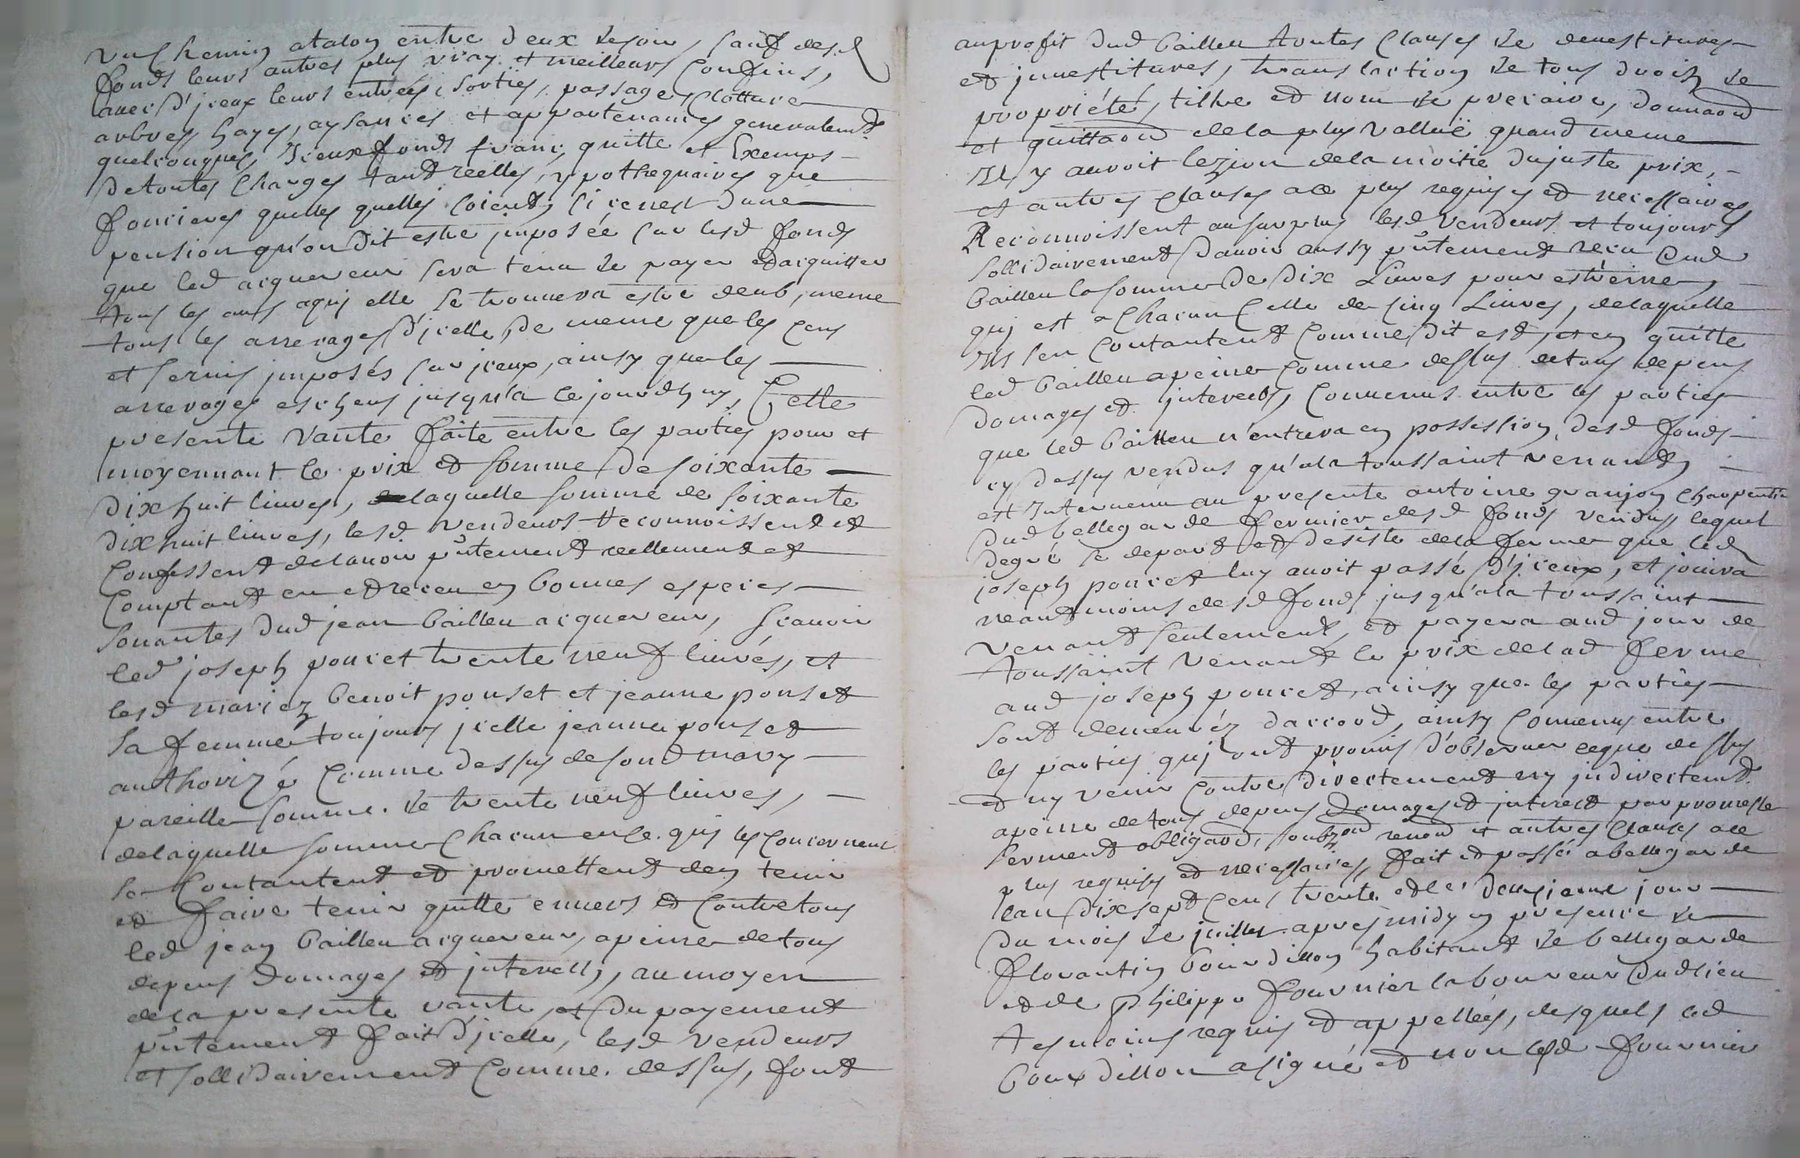 un chemin atalon entre deux de soir, sauf desd
fonds leurs autres plus vrays et meilleurs confins,
avec d'jceux leurs entrées, sorties, passages clotture
arbres, hayes, aysances et appartenances generalemt
quelconques, Jceux fonds franc, quitte et Exemps
de toutes charges tant réelles, ypothequaires que
foncieres quelles quelles soient, si ce nest dune
pension qu'on dit estre jmposée sur lesd fonds
que led acquereur sera tenu de payer et acquitter
tous les ans a quj elle se trouvera estre deub, meme
tous les arrerages d'jcelle, de meme que les cens
et servis jmposés sur jceux, ainsy que les
arrerages escheus jusqu'a ce jourdhuy, Cette
presente vante faite entre les parties pour et
moyennant le prix et somme de soixante
dix huit livres, laquelle somme de soixante
dix huit livres, lesd vendeurs reconnoissent et
confessent delavoir pntement reellement et
comptant eu et receu en bonnes especes
sonantes dud jean bailleu acquereur, scavoir
led joseph poncet trente neuf livrés, et
lesd mariez benoit ponset et jeanne ponset
sa femme toujours jcelle jeanne ponset
authorizéé comme dessus de sond mary
pareille somme de trente neuf livres,
de laquelle somme chacun en ce quj les concernent
se contantent et promettent den tenir
et faire tenir quitte envers et contre tous
led jean bailleu acquereur, a peine de tous
depens domages et jnterests, au moyen
de la presente vante, et du payement
pntement fait d'jcelle, lesd vendeurs
et sollidairement comme dessus, font
au profit dud bailleu toutes clauses de devestitures
et jnvestitures, translaction de tous droits de
propriété, tiltre et nom de precaire, donnand
et quittand de la plus valluë quand meme
Il y auroit lezion de la moitié du juste prix,
et autres clauses a ce plus requises et necessaires
Reconnoissent au surplus lesd vendeurs et toujours
sollidairement d'avoir aussy pntement receu dud
bailleu la somme de dix Livres pour estreine,
quj est a chacun celle de cinq Livres, de laquelle
Ils sen contantent comme dit est, et en quitte
led bailleu a peine comme dessus de tous depens
domages et jnterests, Convenus entre les parties
que led bailleu n'entrera en possession desd fonds
cy dessus vendus qu'a la toussaint venant,
est Intervenu au presente antoine granjon charpentier
dud bellegarde fermier desd fonds vendus, lequel
de gré se depart et desiste de la ferme que led
joseph poncet luy avoit passé d'jceux, et jouira
neantmoins desd fonds jusqu'a la toussaint
venant seulement, et payera aud jour de
toussaint venant le prix de lad ferme
aud joseph poncet, ainsy que les parties
sont demeuréz daccord, ainsy convenus entre
les parties quj ont promis d'observer ce que dessus
et ny venir contre directement ny jndirectemt
a peine de tous depens domages et jnterest par promesse
serment obligaon, soubzon renon et autres clauses a ce
plus requises et necessaires, fait et passé a bellegarde
lan dix sept cens trente et le deuxieme jour
du mois de juillet apres midy en presence de
florantin bourdillon habitant de bellegarde
et de philippe fournier laboureur dud lieu
tesmoins requis et appellées, desquels led
bourdillon a signé et non led fournier